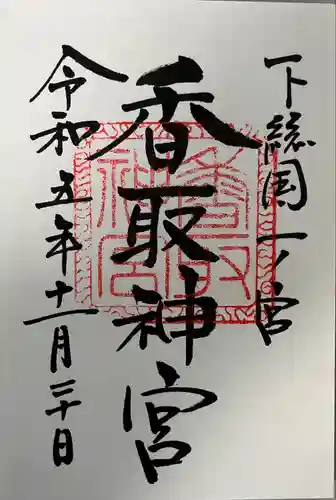 下総国一ノ宮
香取神宮
香取神宮
令和五年十一月三十日